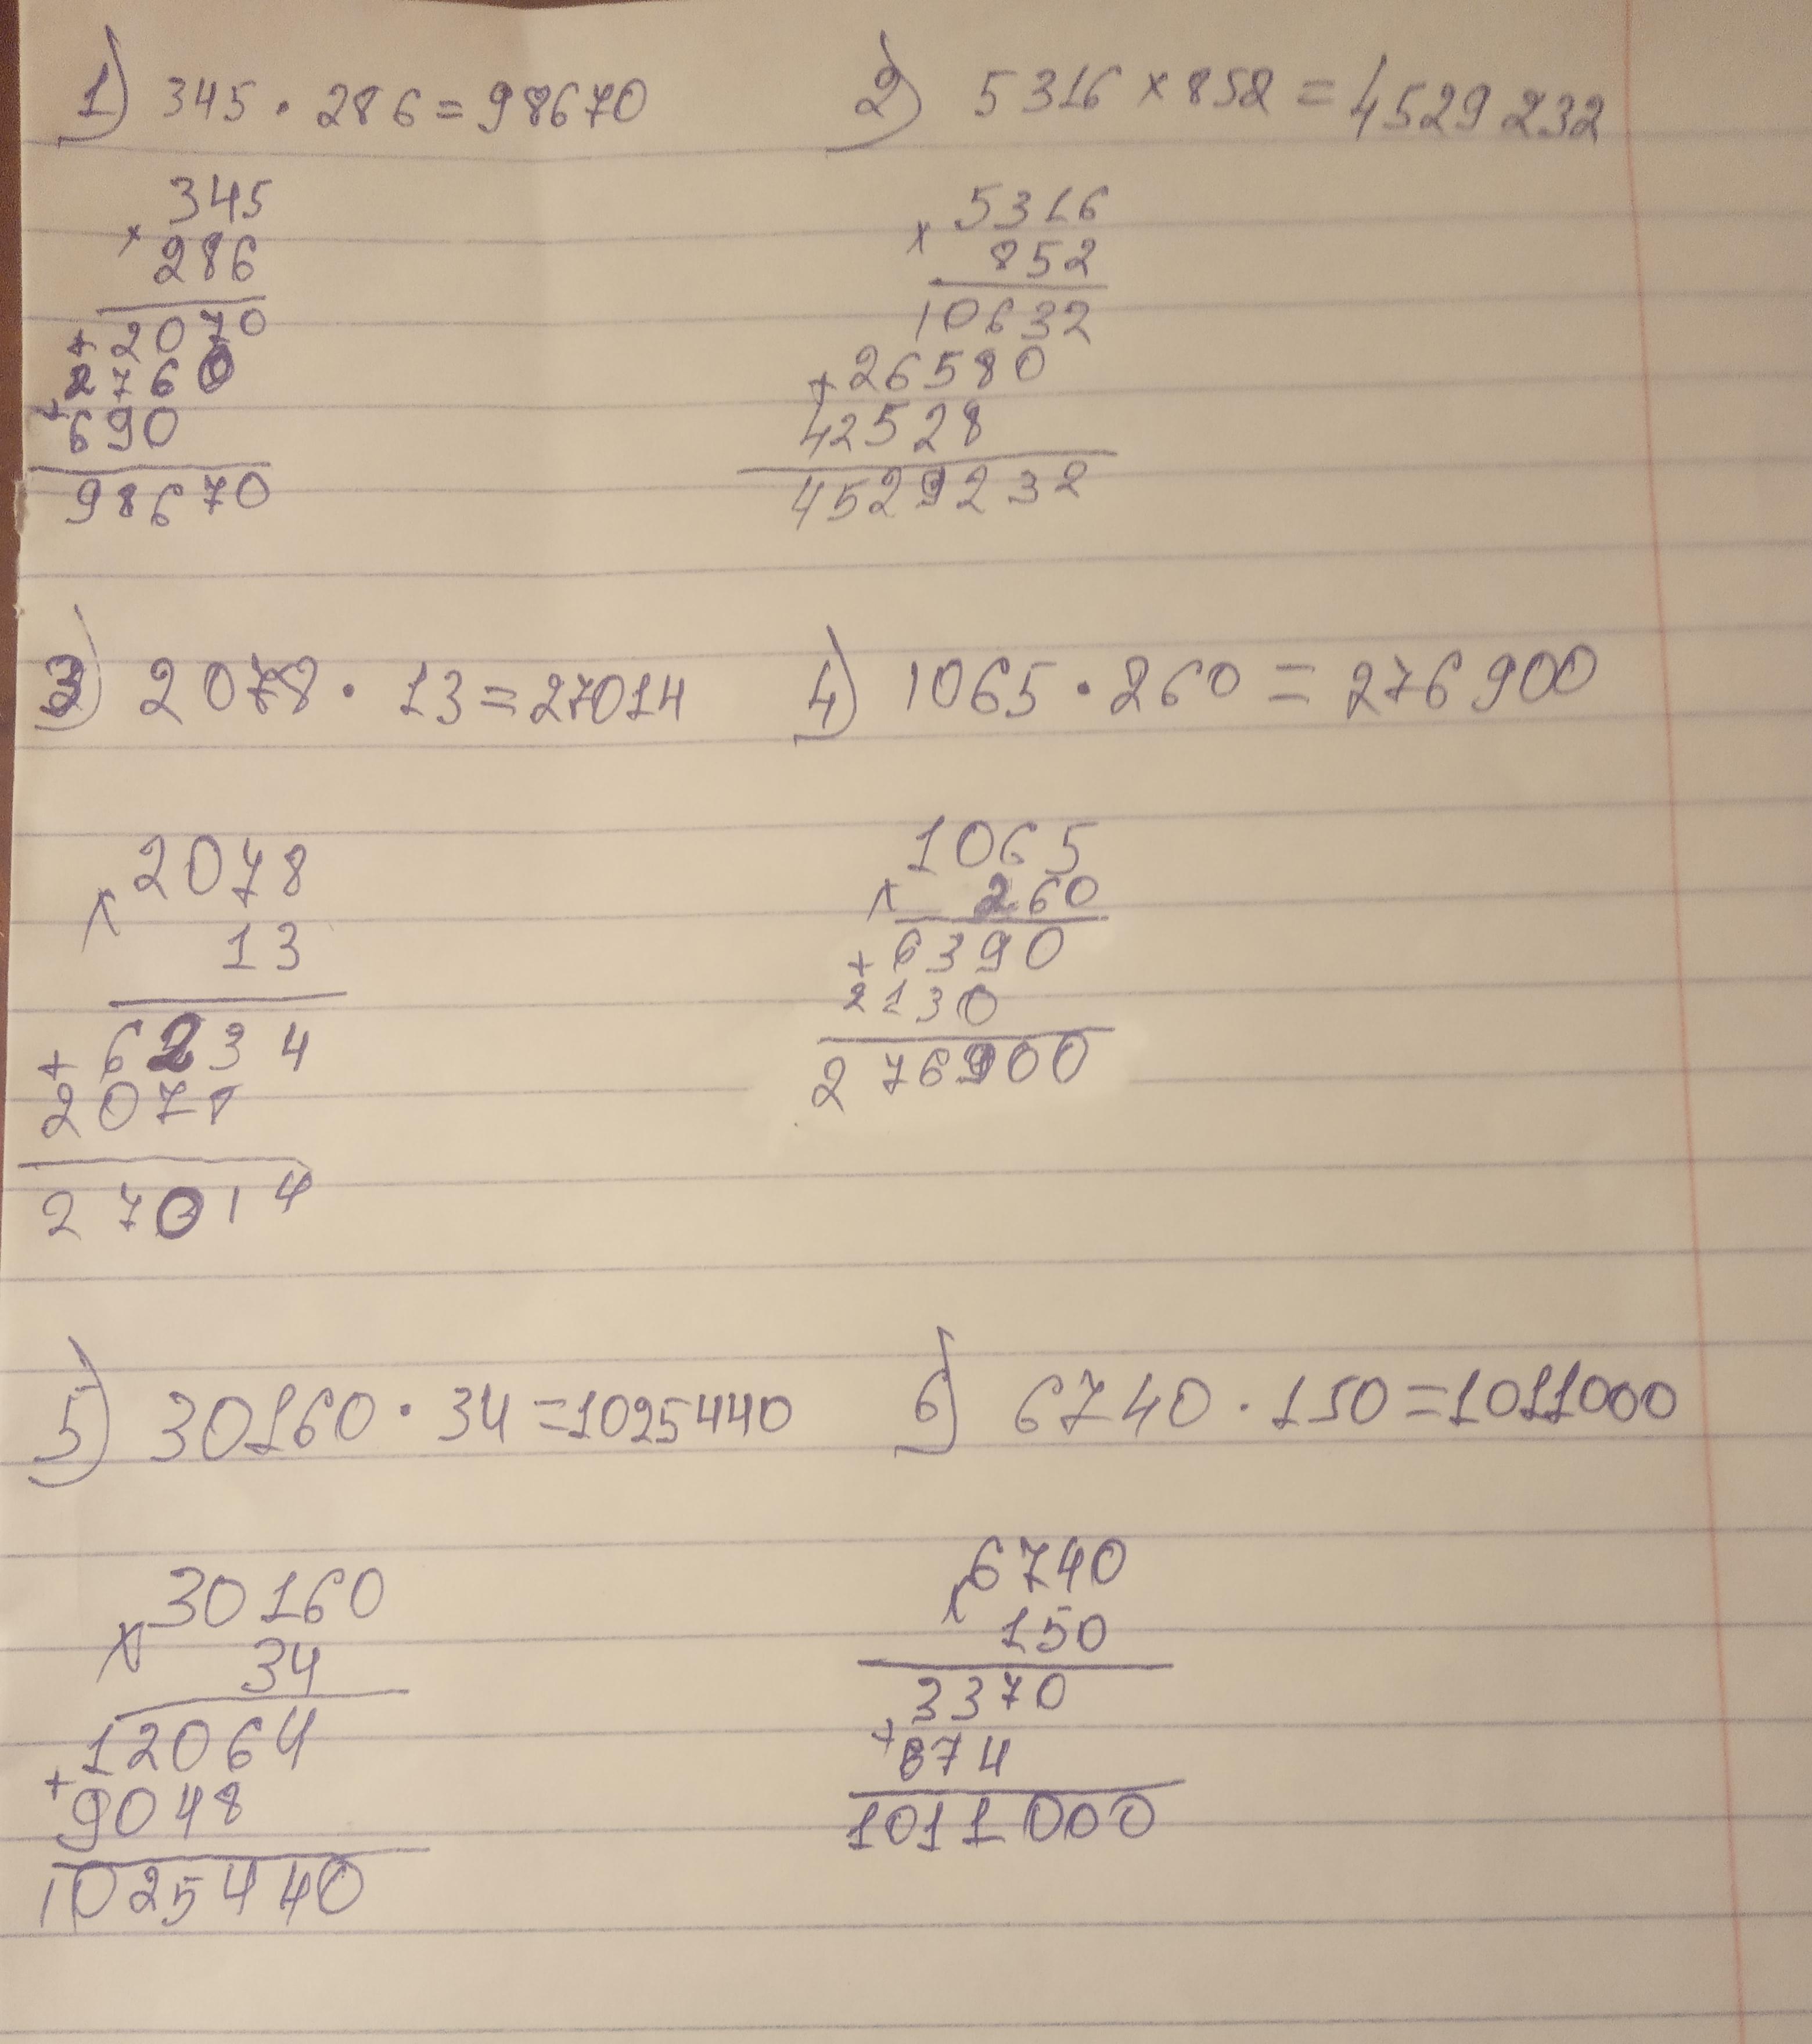 1) 345 · 286 = 98670
345
×
286
+ 2070
2760
+ 690
98670
2) 5316 × 852 = 4529232
5316
×
852
10632
+ 26580
42528
4529232
3) 2078 · 13 = 27014
2078
×
13
+ 6234
2078
27014
4) 1065 · 260 = 276900
1065
× 260
+ 6390
2130
276900
5) 30160 · 34 = 1025440
30160
×
34
12064
+
9048
1025440
6) 6740 · 150 = 1011000
6740
×
150
3370
+
674
1011000